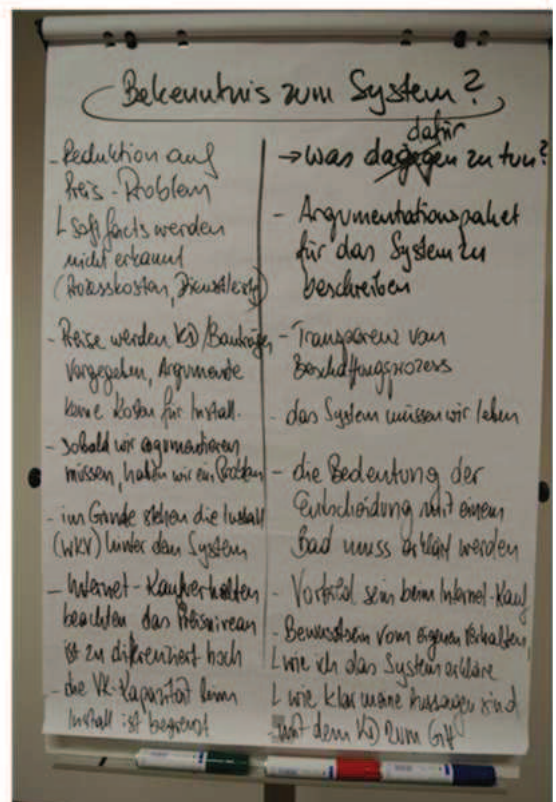 Bekenntnis zum System?
- Reduktion auf
Preis-Problem
L Softfacts werden
nicht erkannt
(Prozesskosten, Dienstleistg)
- Preise werden KD/Bauträger
vorgegeben, Argumente
keine Kosten für Install.
- sobald wir argumentieren
müssen, haben wir ein Problem
- im Grunde stehen die Install
(WKV) hinter dem System
- Internet-Kaufverhalten
beachten das Preisniveau
ist zu differenziert hoch
- die VK-Kapazität beim
Install ist begrenzt
dafür
→ Was dagegen zu tun?
- Argumentationspaket
für das System zu
beschreiben
- Transparenz vom
Beschaffungsprozess
- das System müssen wir leben
- die Bedeutung der
Entscheidung mit einem
Bad muss erklärt werden
- Vorbild sein beim Internet-Kauf
- Bewusstsein vom eigenen Verhalten,
L wie ich das System erkläre
L wie klar meine Aussagen sind
- mit dem KD zum GH